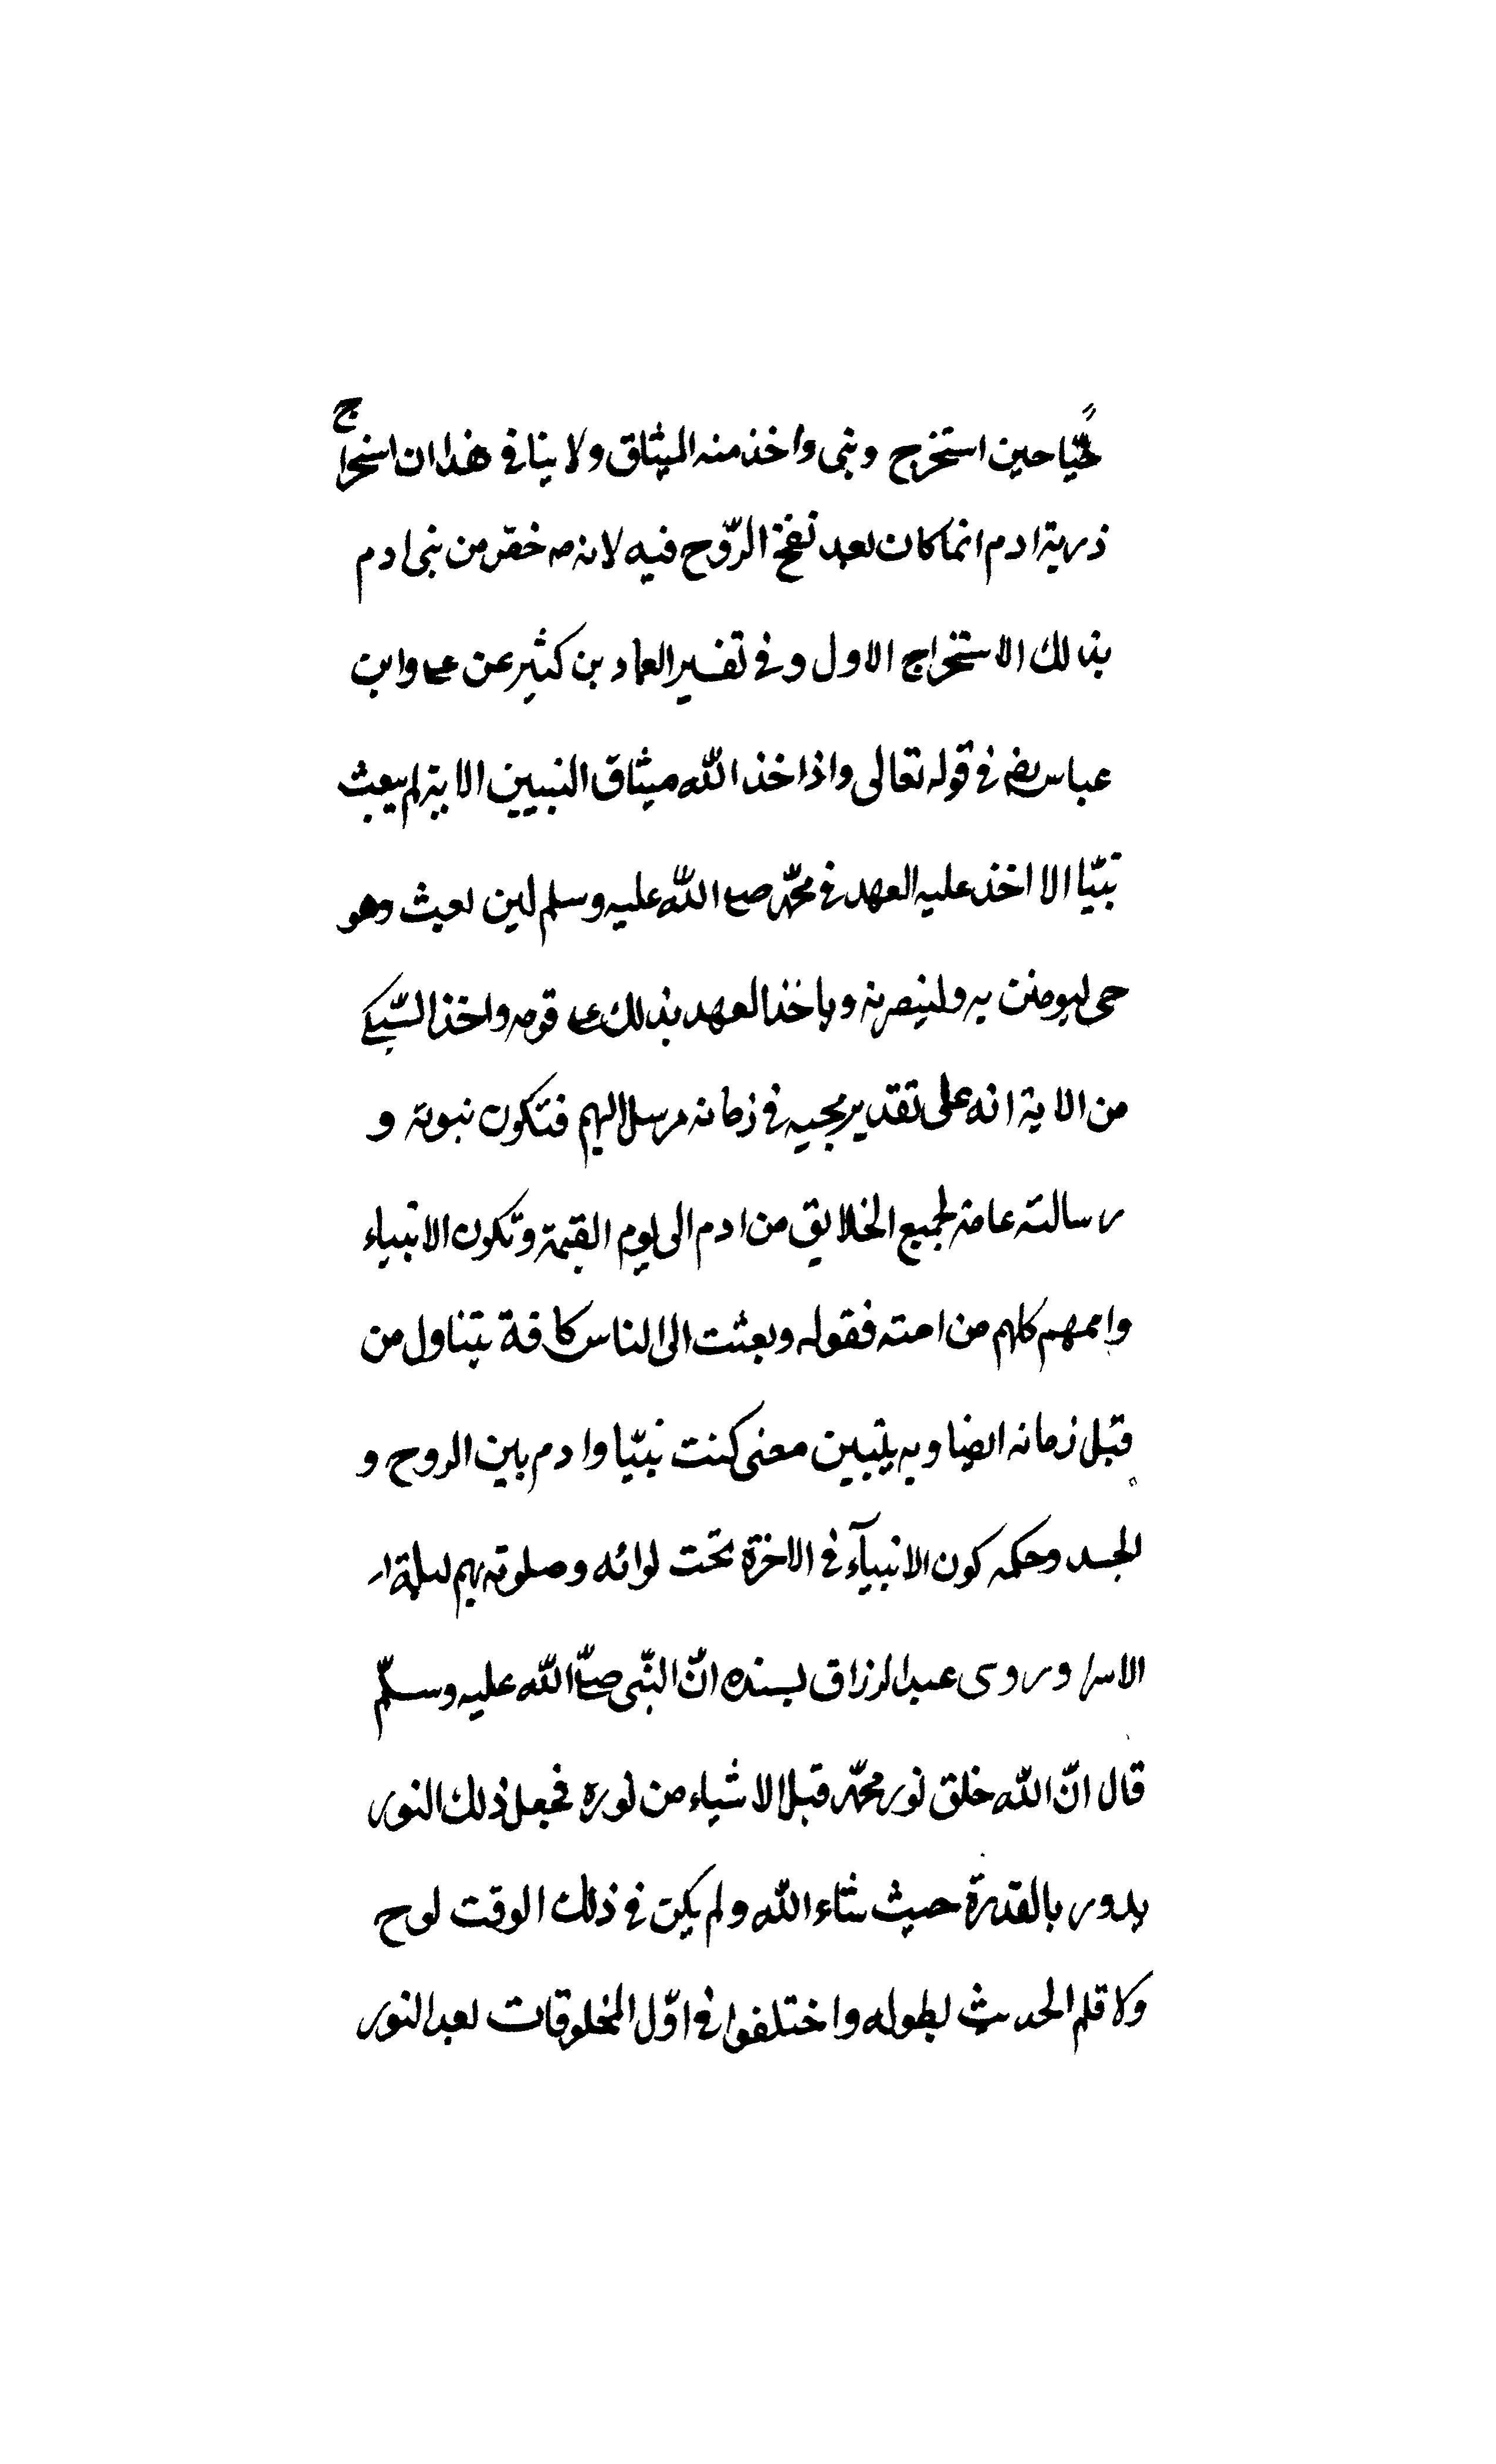 حيّا حين استخرج ونبى واخذ منه الميثاق ولا ينافى هذا ان استخراج
ذرية ادم انما كان بعد نفخ الرّوح فيه لانه صه خص من بنى ادم
بذلك الاستخراج الاول وفى تفسير العماد بن كثير عن على وابن
عباس رضم فى قوله تعالى واذ اخذ الله ميثاق النبيين الاية لم يبعث
نبيّا الا اخذ عليه العهد فى محمّد صلى الله عليه وسلم لين بعث وهو
حى ليومنن به ولينصرنه وياخذ العهد بذلك على قومه واخذ السّبكى
من الاية انه على تقدير مجيه فى زمانه مرسل اليهم فتكون نبوته و
رسالته عامة لجميع الخلايق من ادم الى يوم القيمة وتكون الانبياء
واممهم كلهم من امته فقوله وبعثت الى الناس كافة يتناول من
قبل زمانه ايضا وبه يتبين معنى كنت نبيّا وادم بين الروح و
الجسد وحكمه كون الانبيآء فى الاخرة تحت لوائه وصلوته بهم ليلة
الاسرا وروى عبد الرزاق بسنده انّ النبّى صلّى الله عليه وسلّم
قال انّ الله خلق نور محمّد قبل الاشياء من نوره فجعل ذلك النور
يدور بالقدرة حيث شاء الله ولم يكن فى ذلك الوقت لوح
ولا قلم الحديث بطوله واختلفوا فى اوّل المخلوقات بعد النور